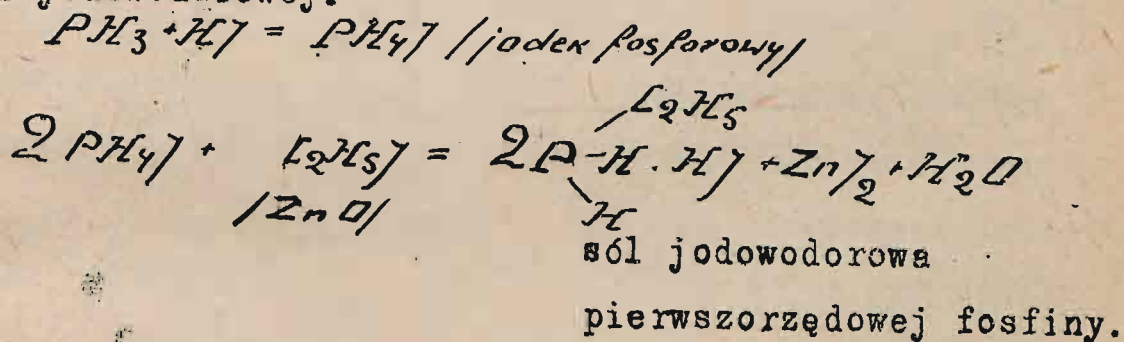 PH₃ + HJ = PH₄J /jodek fosforowy/
C₂H₅
2 PH₄J + C₂H₅J = 2P-H . HJ + ZnJ₂ + H₂O
/ZnO/ H
sól jodowodorowa
pierwszorzędowej fosfiny.